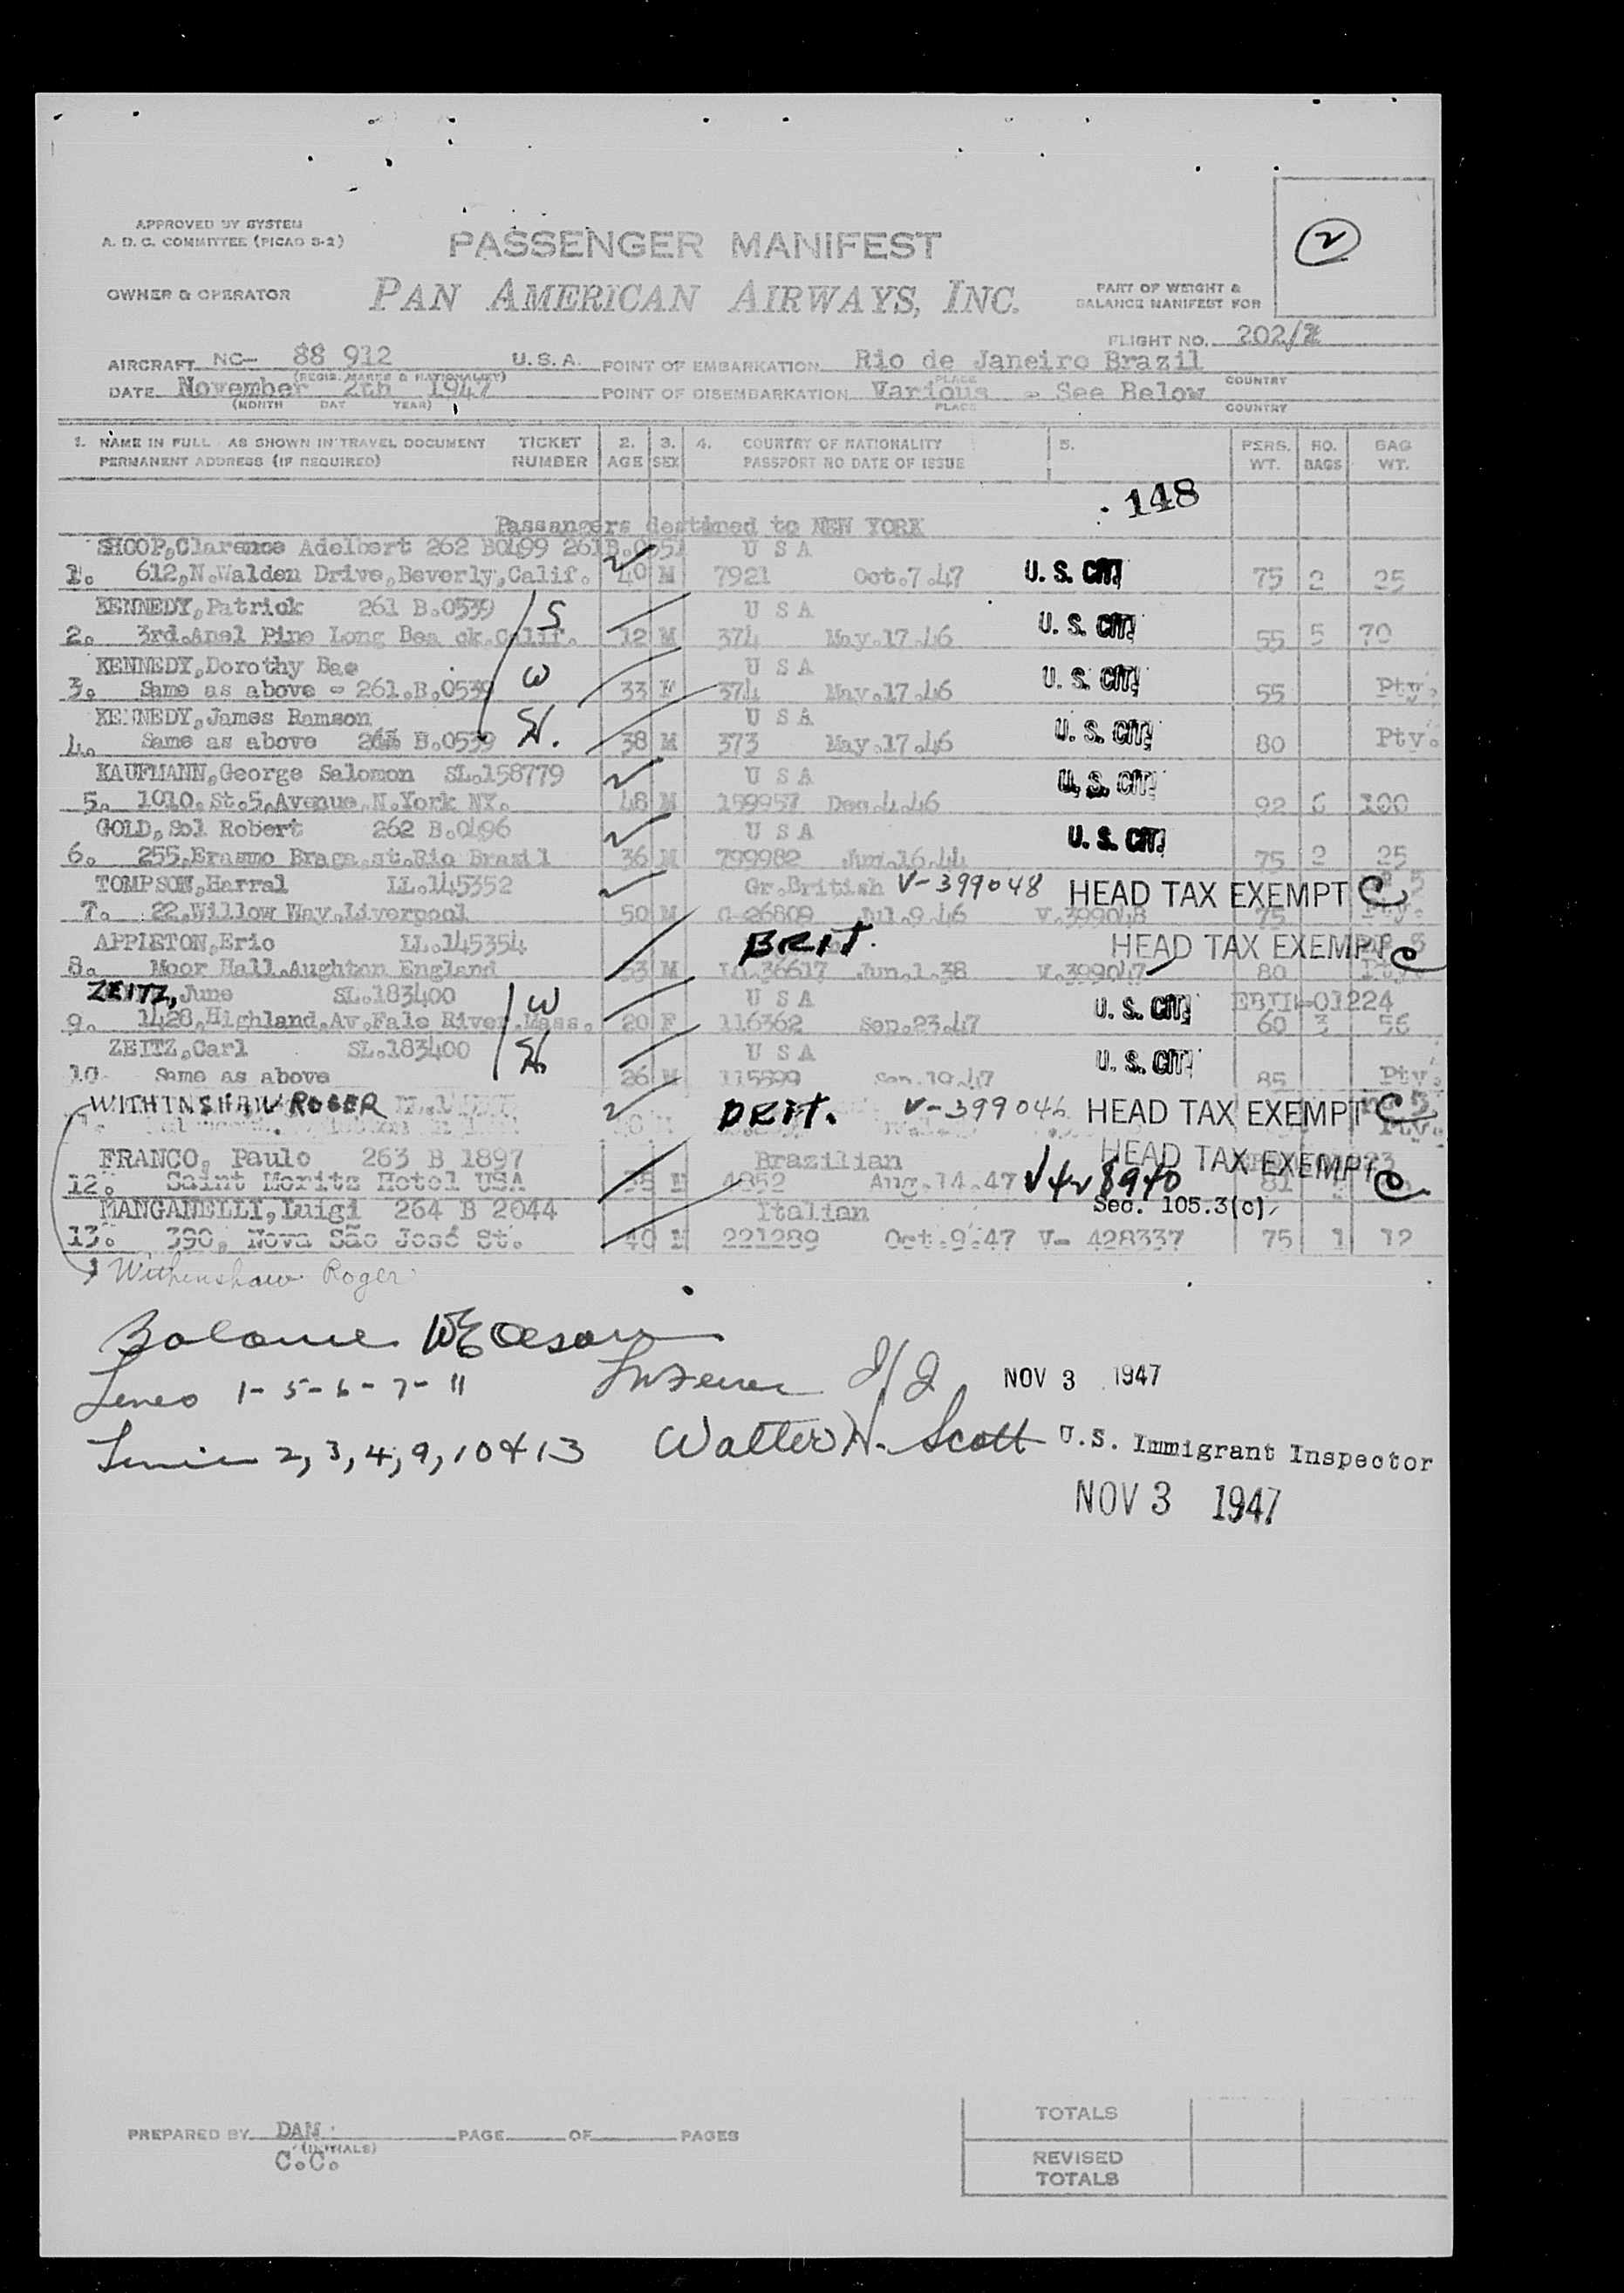 APPROVED BY SYSTEM
A. D. C. COMMITTEE (PICAO S-2)
PASSENGER MANIFEST
2
OWNER & OPERATOR
PAN AMERICAN AIRWAYS, INC.
PART OF WEIGHT &
BALANCE MANIFEST FOR
FLIGHT NO. 202/
AIRCRAFT NC- 88 912 U.S.A. POINT OF EMBARKATION Rio de Janeiro Brazil
(REGIS. MARKS & NATIONALITY) PLACE COUNTRY
DATE November 2th 1947 POINT OF DISEMBARKATION Various - See Below
(MONTH DAY YEAR) PLACE COUNTRY
1. NAME IN FULL AS SHOWN IN TRAVEL DOCUMENT TICKET 2. 3. 4. COUNTRY OF NATIONALITY 5. PERS. NO. BAG
PERMANENT ADDRESS (IF REQUIRED) NUMBER AGE SEX PASSPORT NO DATE OF ISSUE WT. BAGS WT.
148
Passangers destined to NEW YORK
SHOOP, Clarence Adelbert 262 B0499 261B.0551 U S A
1. 612, N. Walden Drive, Beverly, Calif. 40 M 7921 Oct.7.47 U. S. CIT. 75 2 25
KENNEDY, Patrick 261 B.0539 S U S A
2. 3rd. Anel Pine Long Bea ck. Calif. 12 M 374 May.17.46 U. S. CIT. 55 5 70
KENNEDY, Dorothy Bae W U S A
3. Same as above - 261.B.0539 33 F 374 May.17.46 U. S. CIT. 55 Pty.
KENNEDY, James Ramson H. U S A
4. Same as above B.0539 38 M 373 May.17.46 U. S. CIT. 80 Pty.
KAUFMANN, George Salomon SL.158779 U S A
5. 1010. St. 5. Avenue, N. York NY. 48 M 159957 Dec.4.46 U. S. CIT. 92 6 100
GOLD, Sol Robert 262 B.0496 U S A
6. 255, Erasmo Braga. st. Rio Brazil 36 M 799982 Jun.16.44 U. S. CIT. 75 2 25
TOMPSON, Harral LL.145352 Gr.British V-399048 HEAD TAX EXEMPT
7. 22, Willow Way, Liverpool 50 M C-26809 Jul.9.46 V.399048 75 Pty.
APPLETON, Eric LL.145354 BRIT. HEAD TAX EXEMPT
8. Moor Hall. Aughton England 53 M 36617 Jun.1.38 V.399047 80
ZEITZ, June SL.183400 W U S A EBIII-01224
9. 1428, Highland. Av. Fale River. Mass. 20 F 116362 Sep.23.47 U. S. CIT. 60 3 56
ZEITZ, Carl SL.183400 H. U S A
10 Same as above 26 M 115599 Sep.19.47 U. S. CIT. 85 Pty.
WITHINSHAW ROGER BRIT. V-399046 HEAD TAX EXEMPT
Pty.
FRANCO, Paulo 263 B 1897 Brazilian HEAD TAX EXEMPT
12. Saint Moritz Hotel USA 35 M 4852 Aug.14.47 V428940 81
MANGANELLI, Luigi 264 B 2044 Italian Sec. 105.3(c)
13. 390, Nova São José St. 40 M 221289 Oct.9.47 V- 428337 75 1 12
Withenshaw Roger
Lines 1-5-6-7-11 NOV 3 1947
2, 3, 4, 9, 10 & 13 Walter H. Scott U.S. Immigrant Inspector
NOV 3 1947
PREPARED BY DAM PAGE OF PAGES
(INITIALS)
C.C.
TOTALS
REVISED
TOTALS